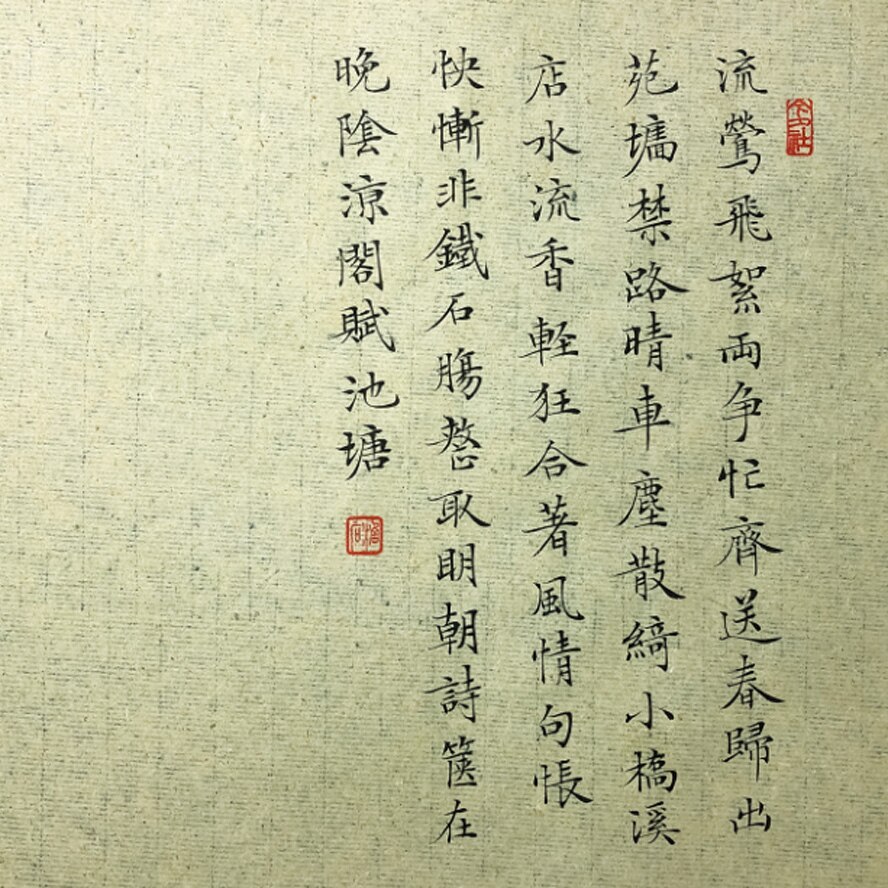 流鶯飛絮両争忙齊送春歸出
苑墻禁路晴車塵散綺小橋溪
店水流香軽狂合著風情句悵
怏慚非鐵石腸整取明朝詩篋在
晩陰涼閣賦池塘